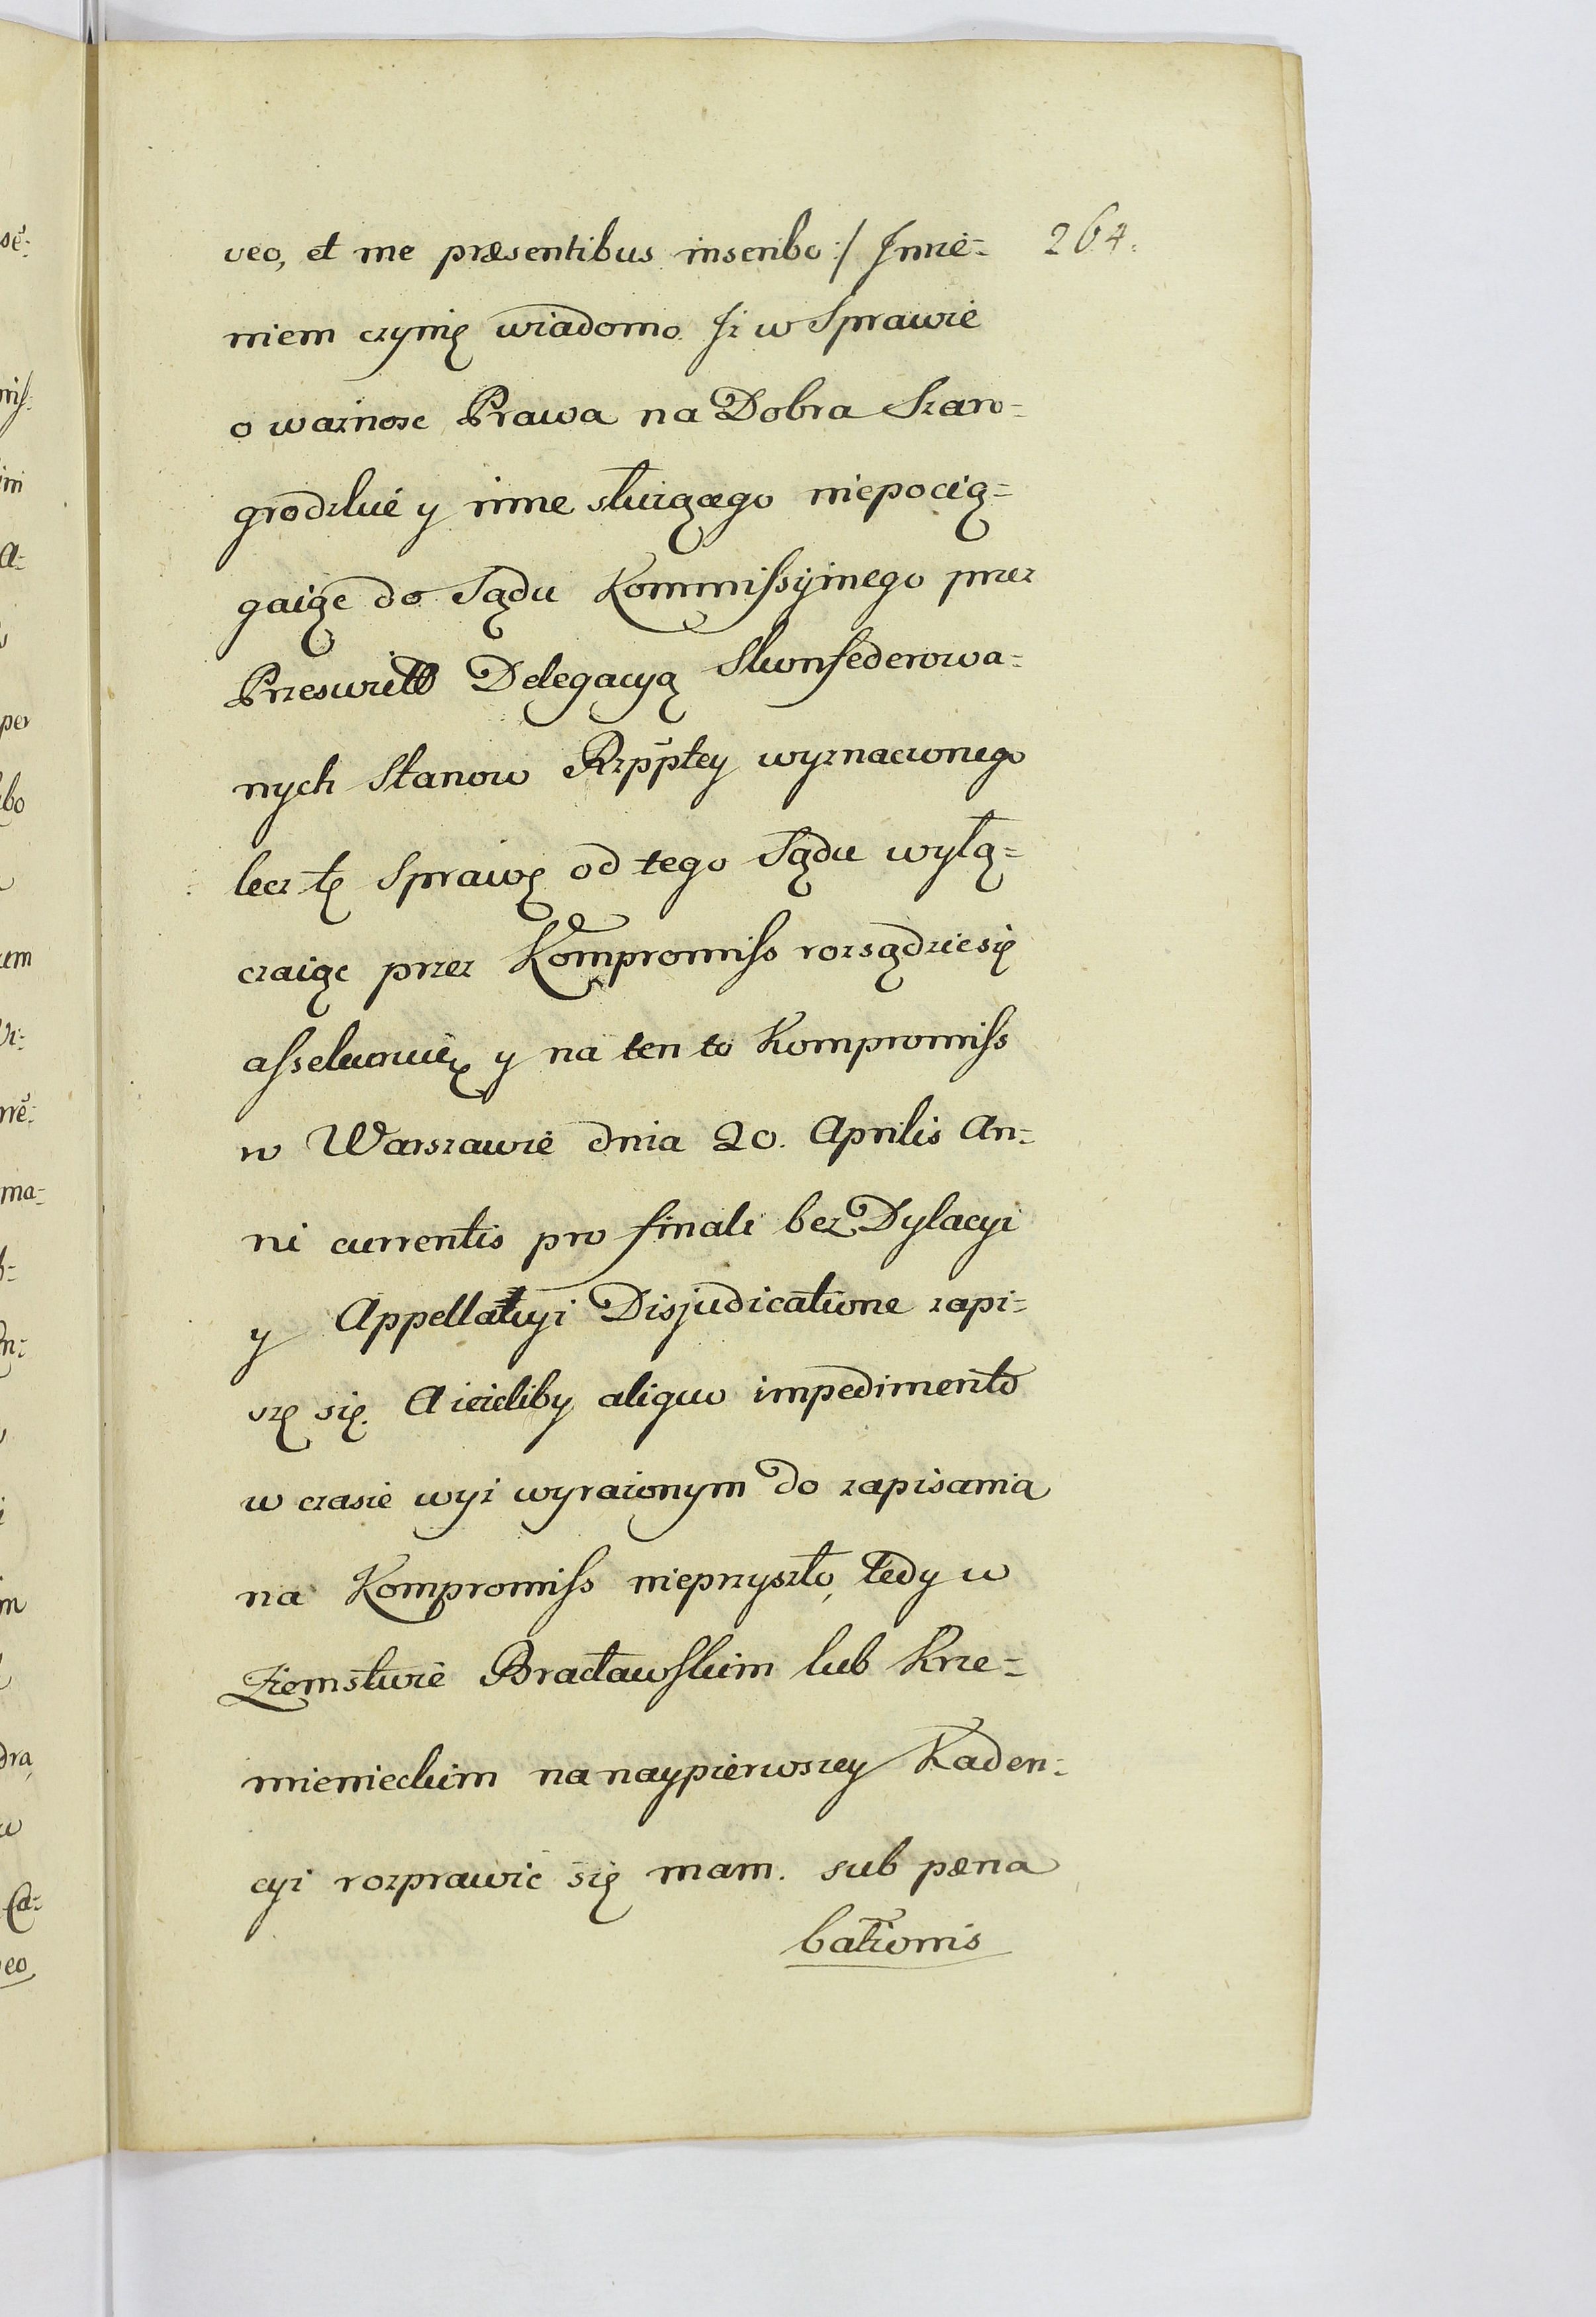 veo, et me præsentibus inscribo :/ Jmie= 264.
niem czynię wiadomo Jz w Sprawie
o waznosc Prawa na Dobra Szaro=
grodzkie y inne słuzącego niepocią=
gaiąc do Sądu Kommissyinego przez
Przeswiett Delegacyą Skonfederowa=
nych Stanow Rzpptey wyznaczonego
lecz tę Sprawę od tego Sądu wyłą=
czaiąc przez Kompromiss rozsądzic się
assekuruię y na ten to Kompromiss
w Warszawie dnia 20. Aprilis An=
ni currentis pro finali bez Dylacyi
y Appellatyi Disjudicatione zapi=
szę się. A iezeliby aliquo impedimento
w czasie wyz wyrazonym do zapisania
na Kompromiss nieprzyszło, tedy w
Ziemstwie Bracławskim lub Krze=
mienieckim na naypierwszey Kaden=
cyi rozprawic się mam. sub pæna
bationis
se=
miss
im
a=
per
ibo
zem
me=
ma=
dn=
dra
w
Ca=
veo